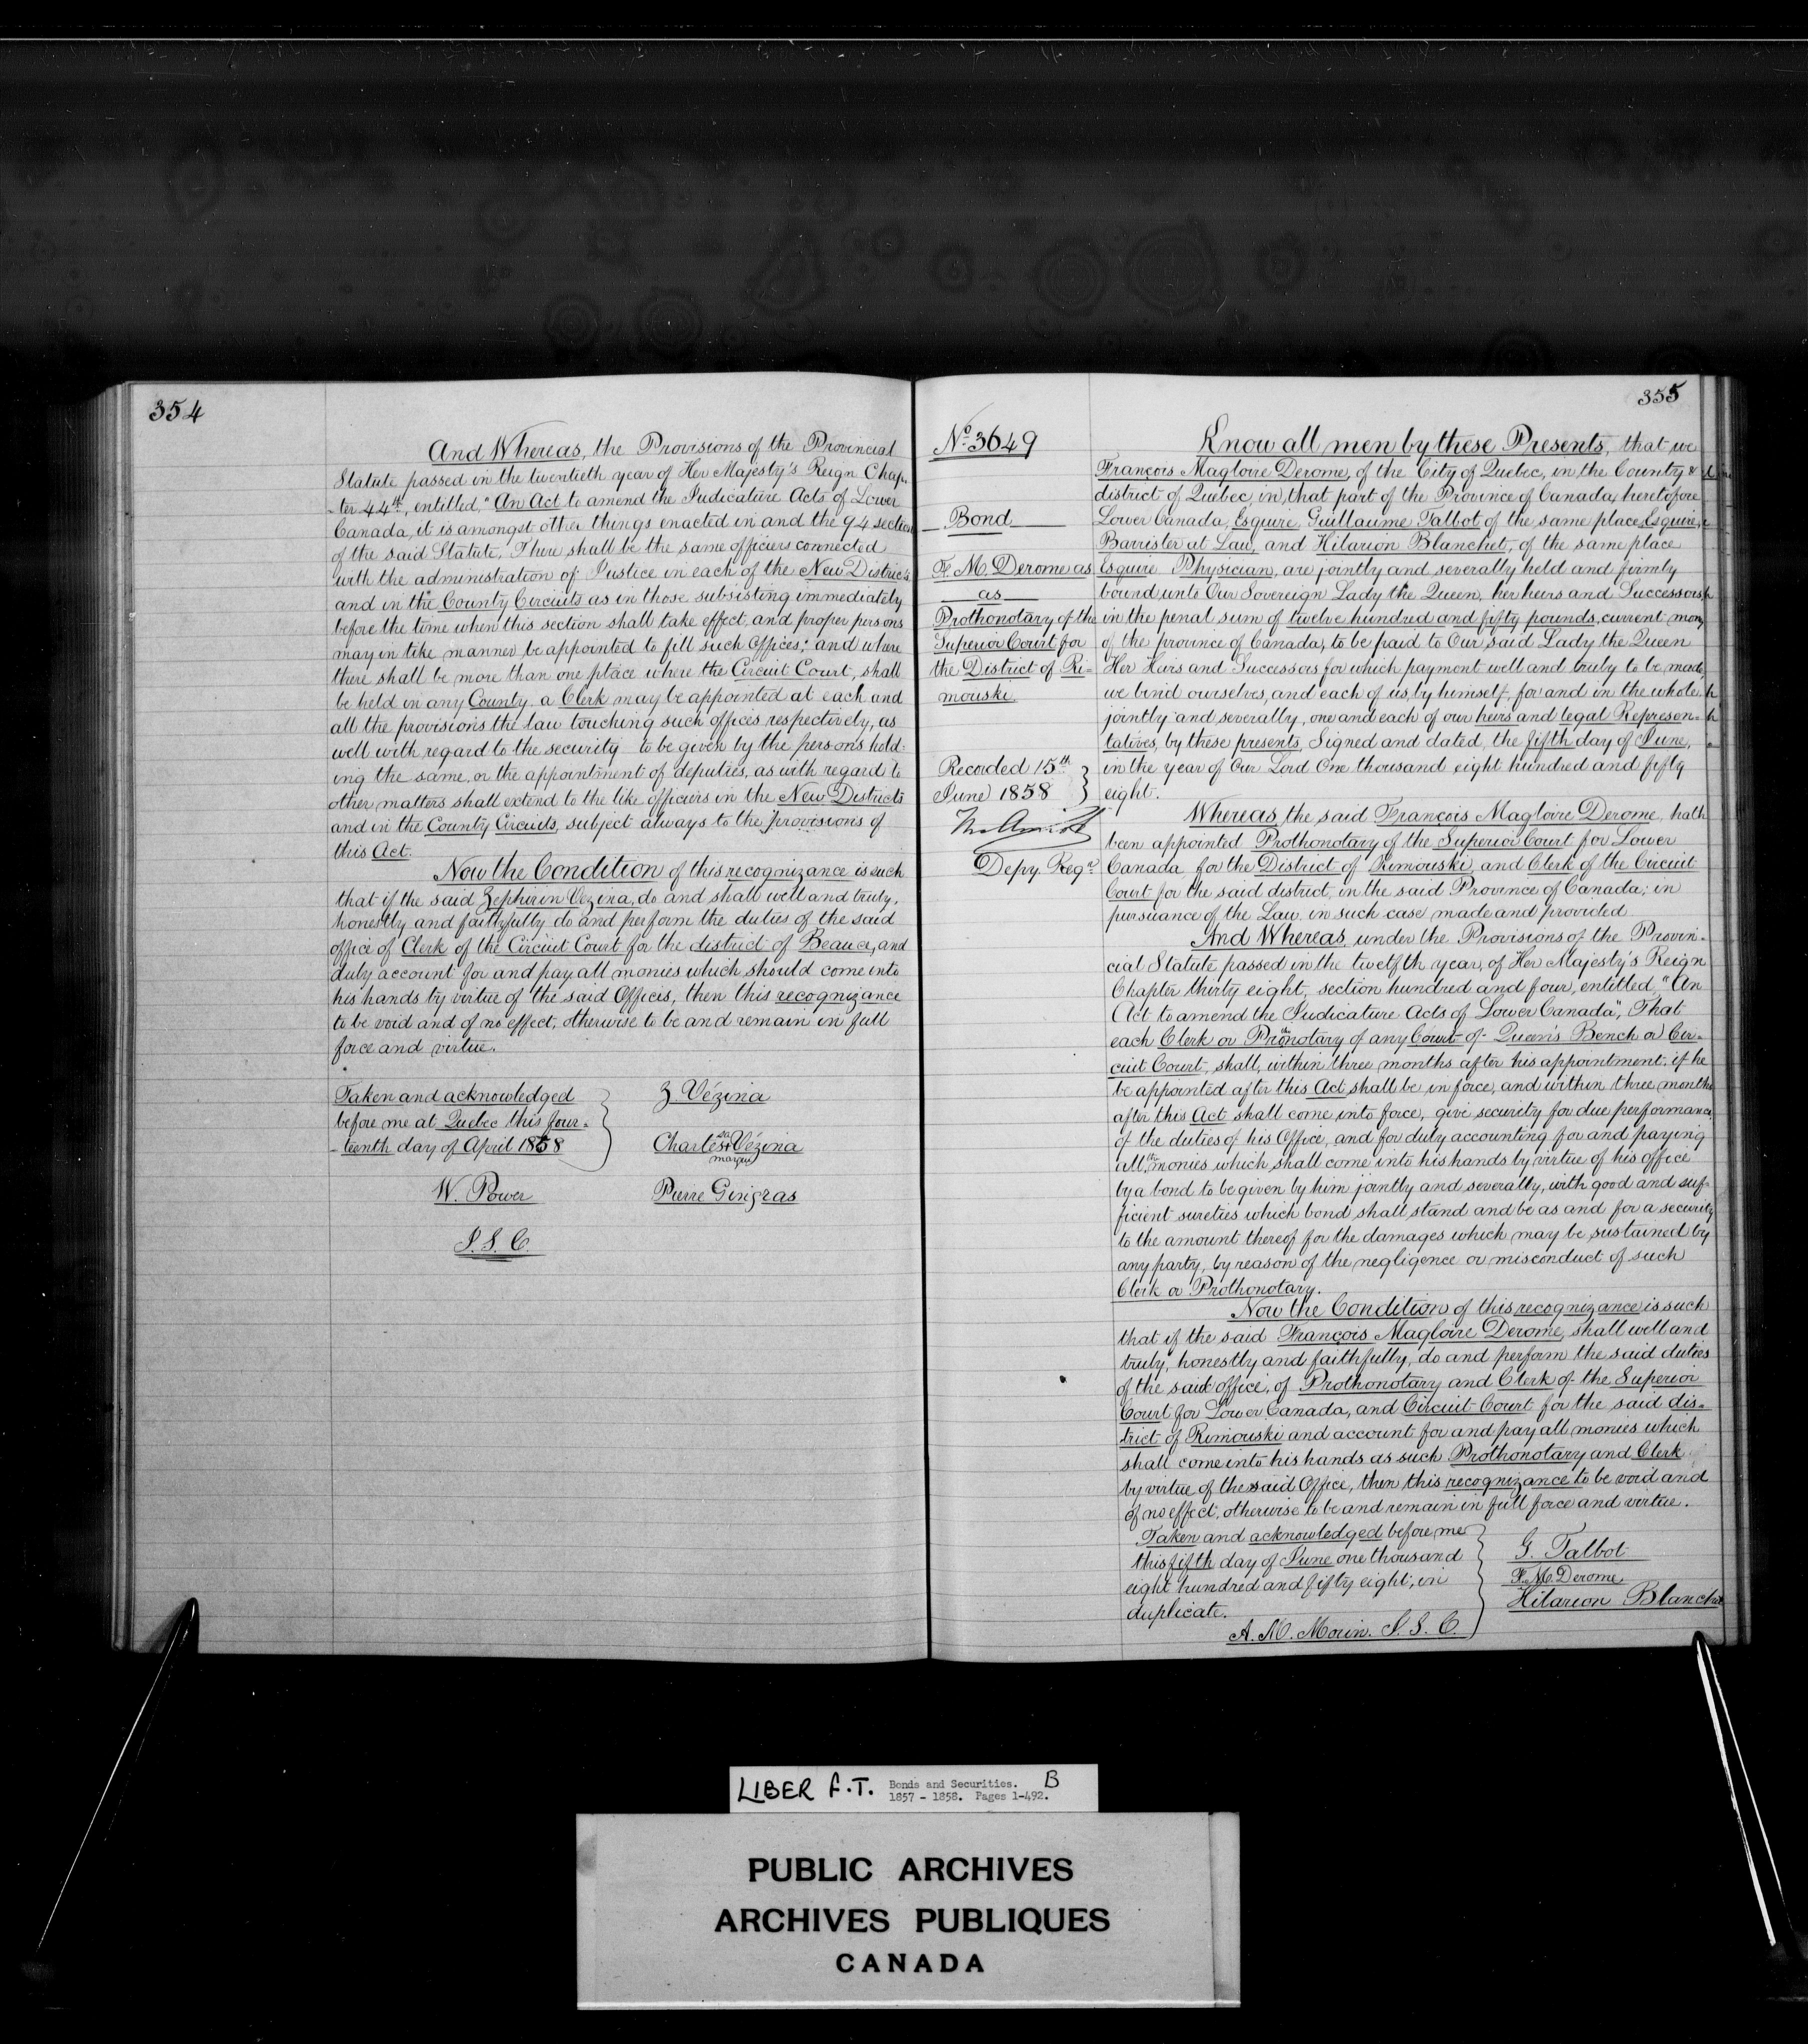 354
And Whereas, the Provisions of the Provincial
Statute passed in the twentieth year of Her Majesty's Reign Chap-
-ter 44th, entitled, "An Act to amend the Judicature Acts of Lower
Canada, it is amongst other things enacted in and the 94 section
of the said Statute, There shall be the same officers connected
with the administration of Justice in each of the New Districts
and in the County Circuits as in those subsisting immediately
before the time when this section shall take effect, and proper persons
may in like manner be appointed to fill such Offices; and where
there shall be more than one place where the Circuit Court, shall
be held in any County a Clerk may be appointed at each and
all the provisions the law touching such offices respectively, as
well with regard to the security to be given by the persons hold-
ing the same, or the appointment of deputies, as with regard to
other matters shall extend to the like officiers in the New Districts
and in the County Circuits, subject always to the provisions of
this Act.
Now the Condition of this recognizance is such
that if the said Zephirin Vezina, do and shall well and truly,
honestly and faithfully do and perform the duties of the said
office of Clerk of the Circuit Court for the district of Beauce, and
duly account for and pay all monies which should come into
his hands by virtue of the said Offices, then this recognizance
to be void and of no effect, otherwise to be and remain in full
force and virtue.
Taken and acknowledged
before me at Quebec this four-
-teenth day of April 1858
W. Power
J. S. C.
Z. Vézina
Charles sa + Vézina
marque
Pierre Gingras
355
No. 3649
Bond
F. M. Derome as
as
Prothonotary of the
Superior Court for
the District of Ri=
mouski.
Recorded 15th
June 1858
Depy. Regr.
Know all men by these Presents, that we
François Magloire Derome, of the City of Quebec, in the County &
district of Quebec, in that part of the Province of Canada, heretofore
Lower Canada, Esquire, Guillaume Talbot of the same place, Esquire,
Barrister at Law, and Hilarion Blanchet, of the same place
Esquire Physician, are jointly and severally held and firmly
bound unto Our Sovereign Lady the Queen, her heirs and Successors,
in the penal sum of twelve hundred and fifty pounds, current mony
of the province of Canada, to be paid to Our said Lady the Queen
Her Heirs and Successors for which payment well and truly to be made,
we bind ourselves, and each of us by himself, for and in the whole
jointly and severally, one and each of our heirs and legal Represen-
tatives, by these presents, Signed and dated, the fifth day of June,
in the year of Our Lord One thousand eight hundred and fifty
eight.
Whereas, the said François Magloire Derome, hath
been appointed Prothonotary of the Superior Court for Lower
Canada for the District of Rimouski, and Clerk of the Circuit
Court for the said district, in the said Province of Canada; in
pursuance of the Law, in such case made and provided
And Whereas, under the Provisions of the Provin-
cial Statute passed in the twelfth year, of Her Majesty's Reign
Chapter thirty eight, section hundred and four, entitled, "An
Act to amend the Judicature Acts of Lower Canada", That
each Clerk or Prothonotary of any Court of Queen's Bench or Cir-
cuit Court, shall, within three months after his appointment, if he
be appointed after this Act shall be in force, and within three months
after this Act shall come into force, give security for due performance
of the duties of his Office, and for duly accounting for and paying
all the monies which shall come into his hands by virtue of his office
by a bond to be given by him jointly and severally, with good and suf-
ficient sureties which bond shall stand and be as and for a security
to the amount thereof for the damages which may be sustained by
any party, by reason of the negligence or misconduct of such
Clerk or Prothonotary.
Now the Condition of this recognizance is such
that if the said François Magloire Derome, shall well and
truly, honestly and faithfully, do and perform the said duties
of the said office, of Prothonotary and Clerk of the Superior
Court for Lower Canada, and Circuit Court for the said dis-
trict of Rimouski and account for and pay all monies which
shall come into his hands as such Prothonotary and Clerk
by virtue of the said Office, then this recognizance to be void and
of no effect, otherwise to be and remain in full force and virtue.
Taken and acknowledged before me
this fifth day of June one thousand
eight hundred and fifty eight, in
duplicate.
A. N. Morin. J. S. C.
G. Talbot
F. M. Derome
Hilarion Blanchet
LIBER F.T. Bonds and Securities. B
1857 - 1858. Pages 1-492.
PUBLIC ARCHIVES
ARCHIVES PUBLIQUES
CANADA